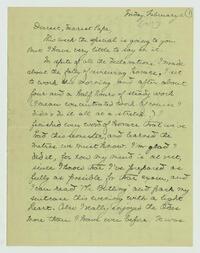 Friday, February
(1)
Dearest, dearest Pope,
This week the special is going to you
but I have very little to say in it.
In spite of all the declarations I made
about the folly of reviewing Horace, I set
to work this morning and after about
four and a half hours of steady work
(I mean concentrated work because I
didn't do it all at a stretch.) I
finished every work of Horace that we've
had this semester, and learned the
metres we must know. I'm glad I
did it, for now my mind is at rest,
since I know that I've prepared as
fully as possible for that exam, and
I can read "The Blessing" and pack my
suitcase this evening with a light
heart. Also I really enjoyed the Odes
more than I have ever before. It was